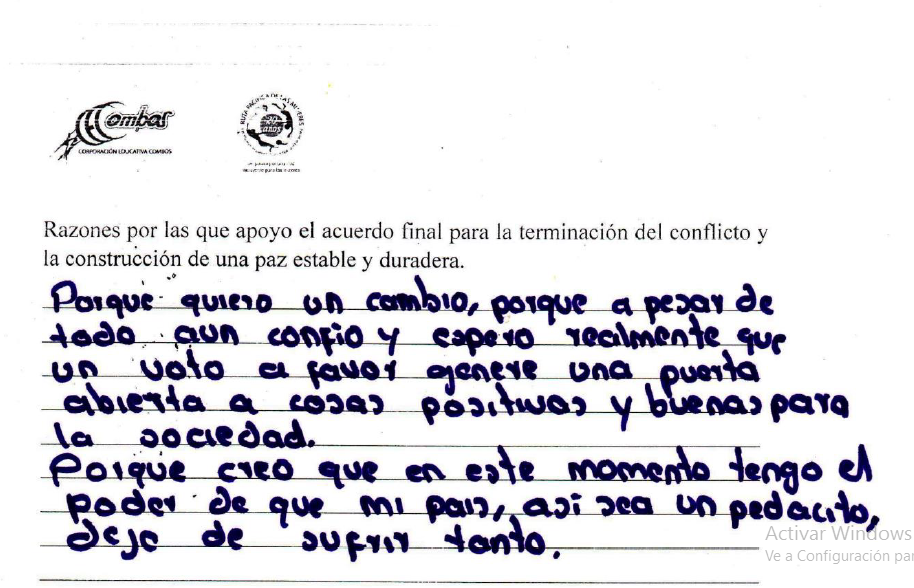 Combos
CORPORACIÓN EDUCATIVA COMBOS
RUTA PACÍFICA DE LAS MUJERES
20 años
Razones por las que apoyo el acuerdo final para la terminación del conflicto y
la construcción de una paz estable y duradera.
Porque quiero un cambio, porque a pesar de
todo aun confio y espero realmente que
un voto a favor genere una puerta
abierta a cosas positivas y buenas para
la sociedad.
Porque creo que en este momento tengo el
poder de que mi pais, asi sea un pedacito,
deje de sufrir tanto.
Activar Windows
Ve a Configuración par